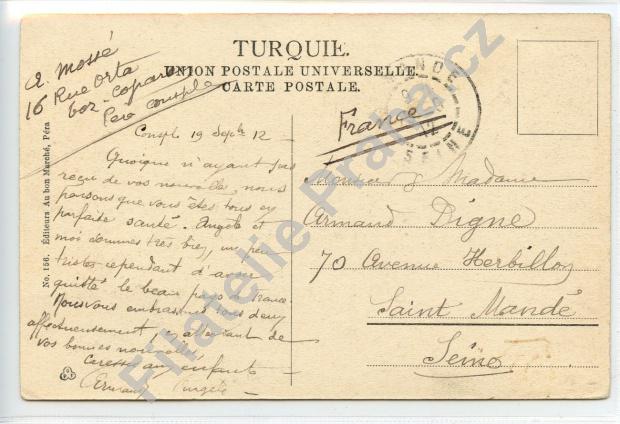 TURQUIE.
UNION POSTALE UNIVERSELLE.
CARTE POSTALE.
A. Mossé
16 Rue Orta
Pera Conple
France
Conple 19 Septb 12
Quoique n'ayant pas
reçu de vos nouvelles, nous
pensons que vous êtes tous en
parfaite santé. Angèle et
moi sommes très bien, un peu
tristes cependant d'avoir
quitté le beau pays France.
Nous vous embrassons tous deux
affectueusement en attendant de
vos bonnes nouvelles
Caresses aux enfants
Armand Angèle
Monsieur & Madame
Armand Digne
70 Avenue Herbillon
Saint Mandé
Seine
No. 156. Éditeurs Au bon Marché, Péra
SEINE
Filatelie Praha.cz